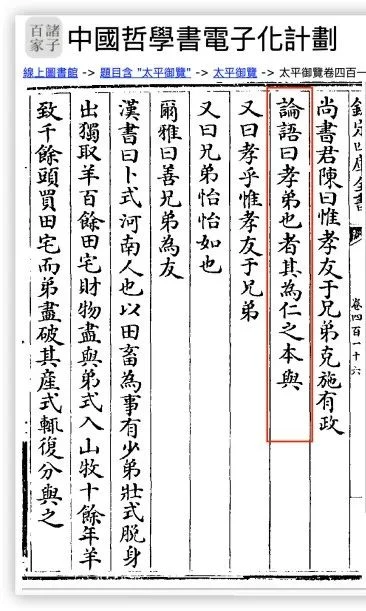 諸子百家
中國哲學書電子化計劃
線上圖書館 -> 題目含 "太平御覽" -> 太平御覽 -> 太平御覽卷四百一
欽定四庫全書
卷四百一十六
尚書君陳曰惟孝友于兄弟克施有政
論語曰孝弟也者其為仁之本與
又曰孝乎惟孝友于兄弟
又曰兄弟怡怡如也
爾雅曰善兄弟為友
漢書曰卜式河南人也以田畜為事有少弟壯式脫身
出獨取羊百餘田宅財物盡與弟式入山牧十餘年羊
致千餘頭買田宅而弟盡破其産式輒復分與之